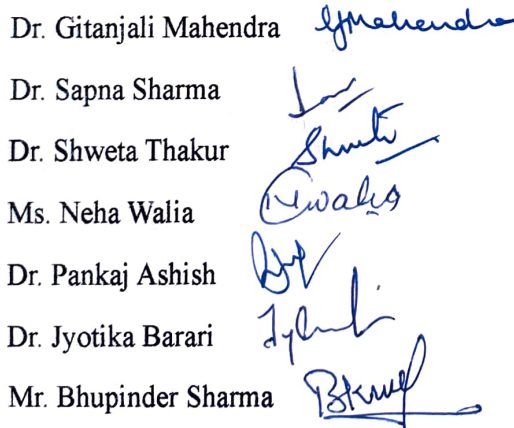 Dr. Gitanjali Mahendra GMahendra
Dr. Sapna Sharma
Dr. Shweta Thakur Shweta
Ms. Neha Walia Nwalia
Dr. Pankaj Ashish
Dr. Jyotika Barari
Mr. Bhupinder Sharma